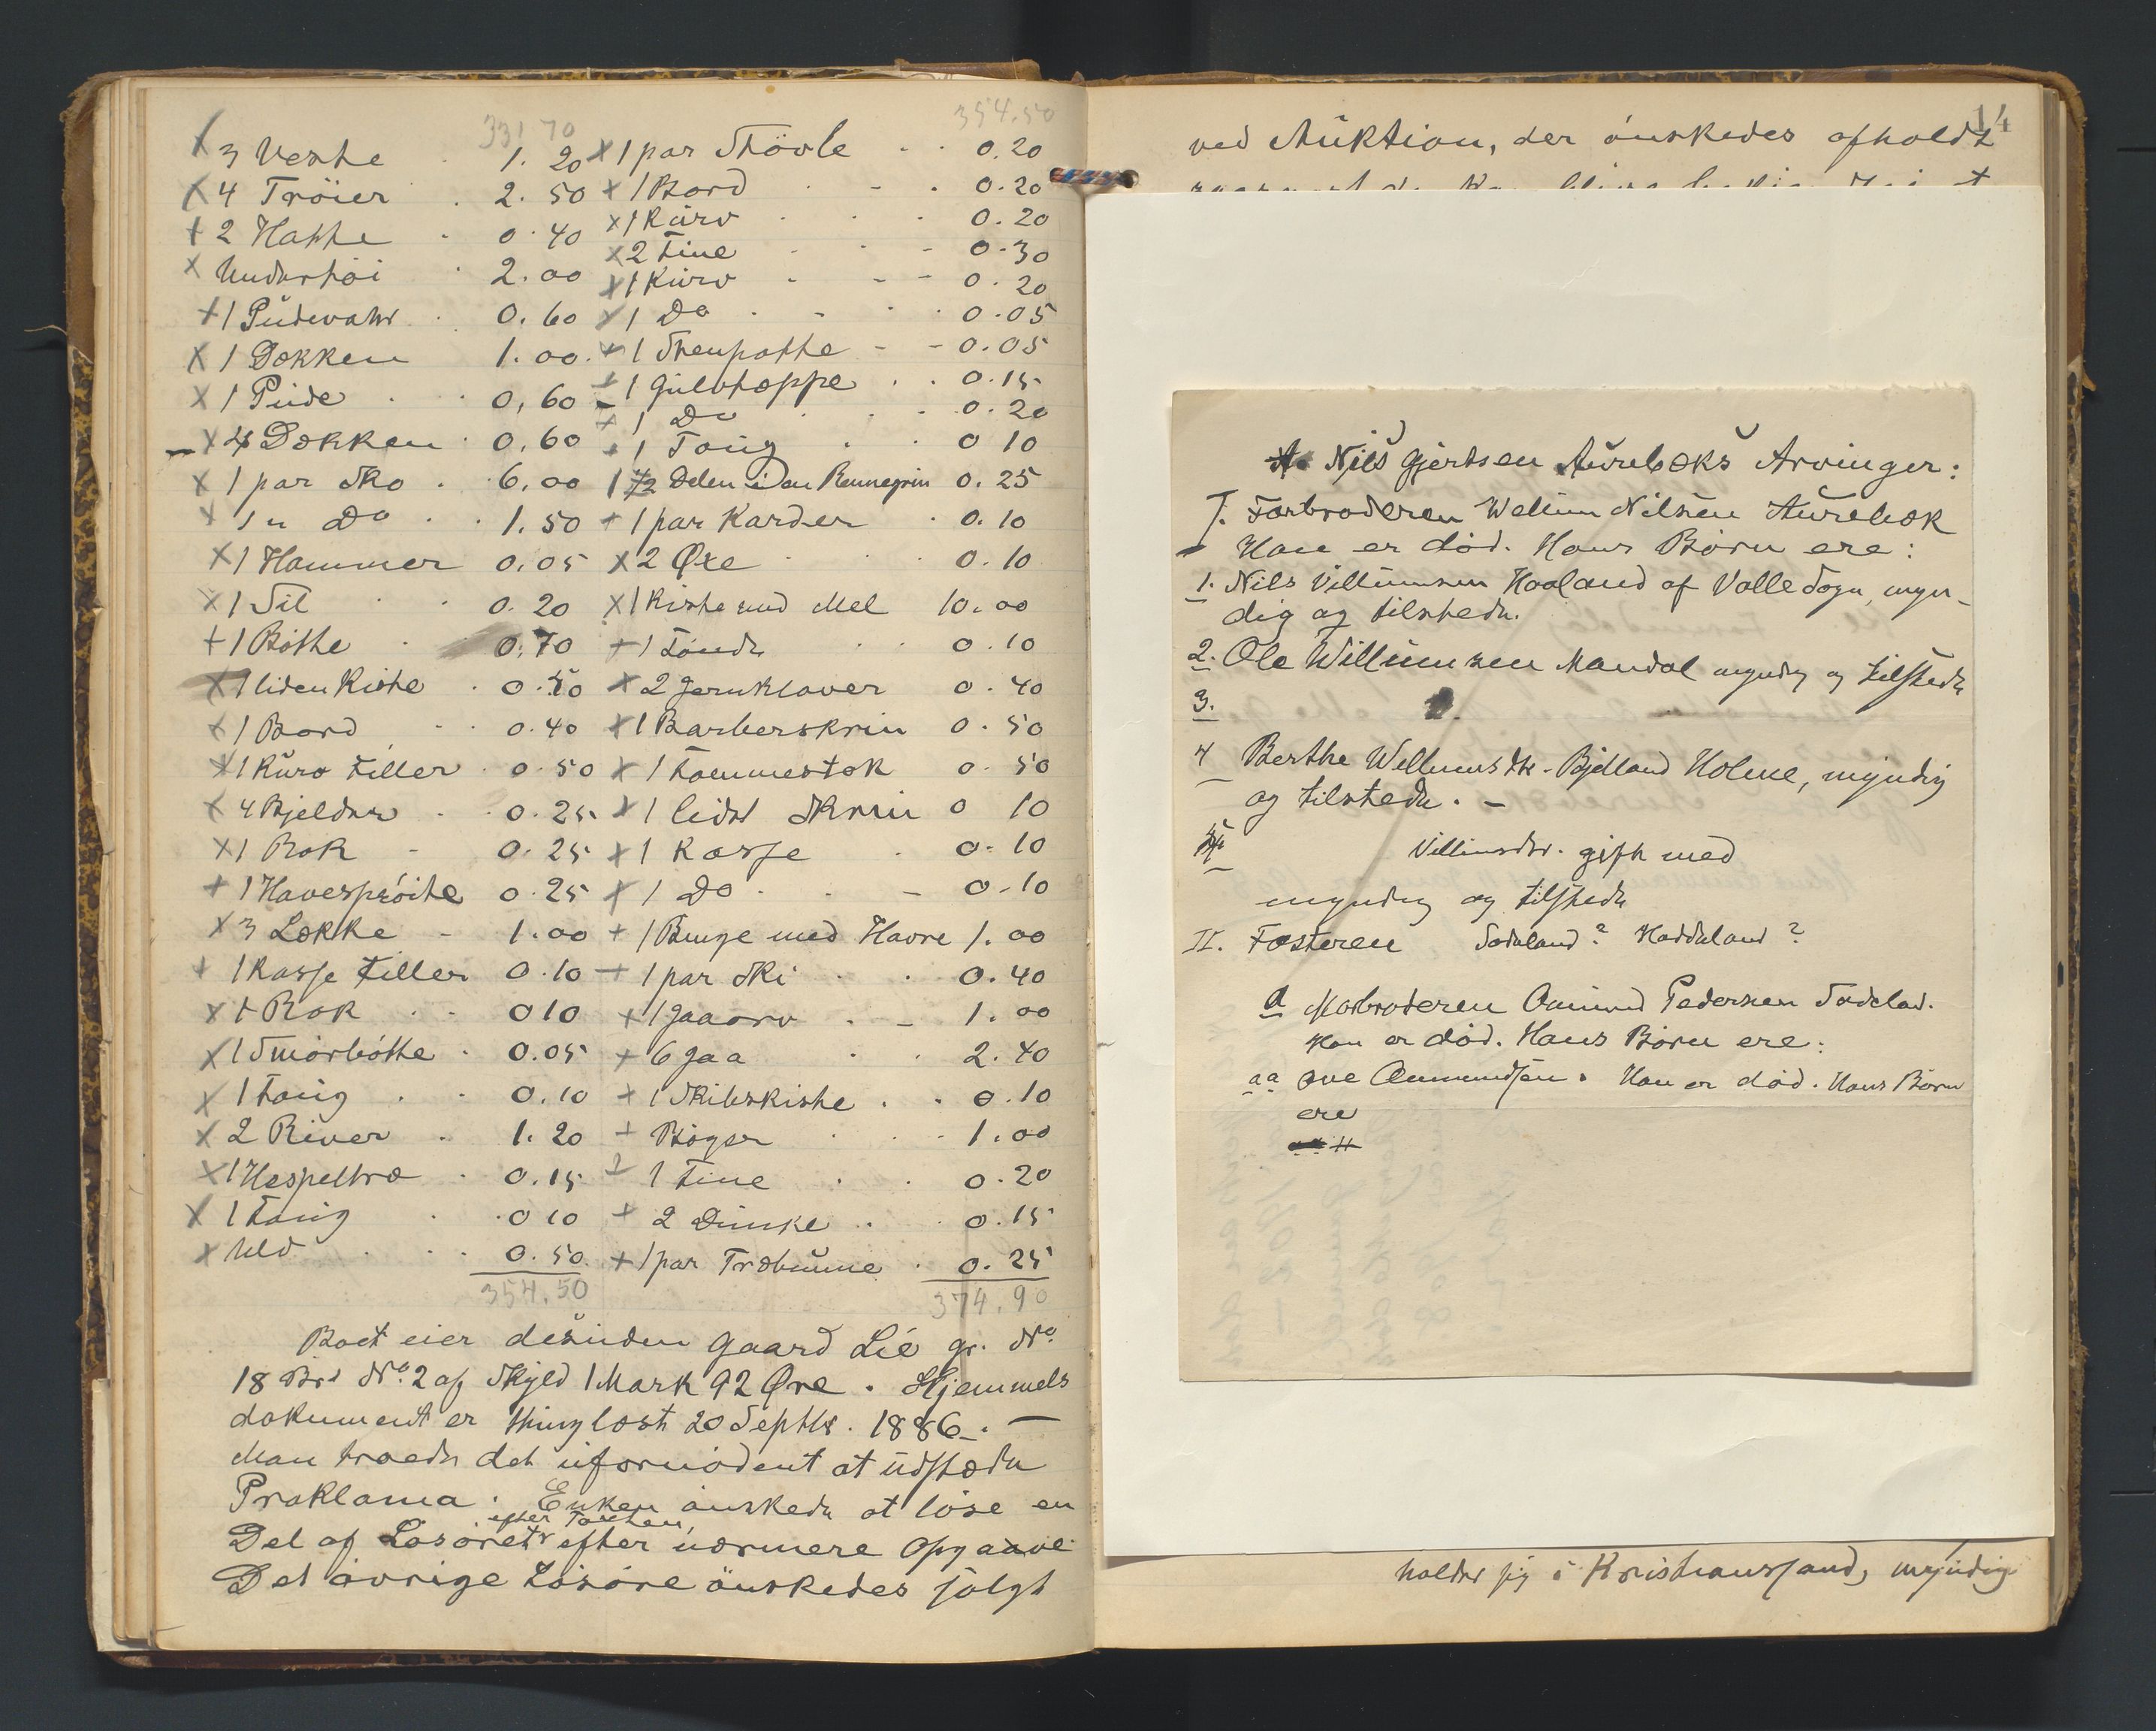 331 70
3 Veste 1. 20
4 Tröier 2. 50
2 Hatte 0. 40
Undertöi 2. 00
1 Pudevahr 0. 60
1 Dækken 1. 00
1 Pude 0, 60
4 Dækken 0. 60
1 par Sko 6. 00
1 " Do 1. 50
1 Hammer 0. 05
1 Sil 0. 20
1 Bötte 0. 70
1 liden Kiste
1 Bord 0. 40
1 Kurv Filler 0. 50
4 Bjelder 0. 25
1 Rok 0. 25
1 Havespröite 0. 25
3 Løkke 1. 00
1 Kasse Filler 0. 10
1 Rok 0 10
1 Smörbötte 0. 05
1 Toug 0. 10
2 River 1. 20
1 Hespeltræ 0. 15
1 Toug 0 10
Uld 0. 50
354. 50
354. 50
1 par Stövle 0. 20
1 Bord 0. 20
1 Kurv 0. 20
2 Tine 0. 30
1 Kurv 0. 20
1 Do 0. 05
1 Stenpotte 0. 05
1 Gulvteppe 0. 15
1 Do 0. 20
1 Toug 0 10
1/2 Delen i en Rennegrin 0. 25
1 par Karder 0. 10
2 Øxe 0. 10
1 Kiste med Mel 10. 00
1 Tönde 0. 10
2 Jernklover 0. 40
1 Barberskrin 0. 50
1 Tommestok 0. 50
1 lidet Skrin 0 10
1 Kasse 0. 10
1 Do 0. 10
1 Binge med Havre 1. 00
1 par Ski 0. 40
1 Jaaorv 1. 00
6 Jaa 2. 40
1 Skibskiste 0. 10
Böger 1. 00
1 Tine 0. 20
2 Dunke 0. 15
1 par Træbumme 0. 25
374. 90
Boet eier desuden Gaard Lie gr. No
18 Brs No. 2 af Skyld 1 Mark 92 Øre. Hjemmels
dokument er thinglæst 20 Septbr. 1886. —
Man troede det ufornödent at udstede
Proklama. Enken önskede at löse en
efter Taxten,
Del af Lösöret efter nærmere Opgave
Det övrige Lösöre önskedes solgt
14
ved Auktion, der önskedes afholdt
Nils Gjertsen Aurebæks Arvinger:
I. Farbroderen Wellum Nilsen Aurebæk
Han er död. Hans Börn ere:
1. Nils Villumsen Haaland af Valle Sogn, myn-
dig og tilstede.
2. Ole Willumsen Mandal myndig og tilstede
3.
4 Berthe Wellumsdtr. Bjelland Holme, myndig
og tilstede. —
Villumsdtr. gift med
myndig og tilstede
II. Fasteren Sodeland? Haddeland?
a Morbroderen Omund Pedersen Sodelad.
Han er död. Hans Börn ere:
aa Ove Ommundsen. Han er död. Hans Börn
ere
holder sig i Kristianssand, myndig